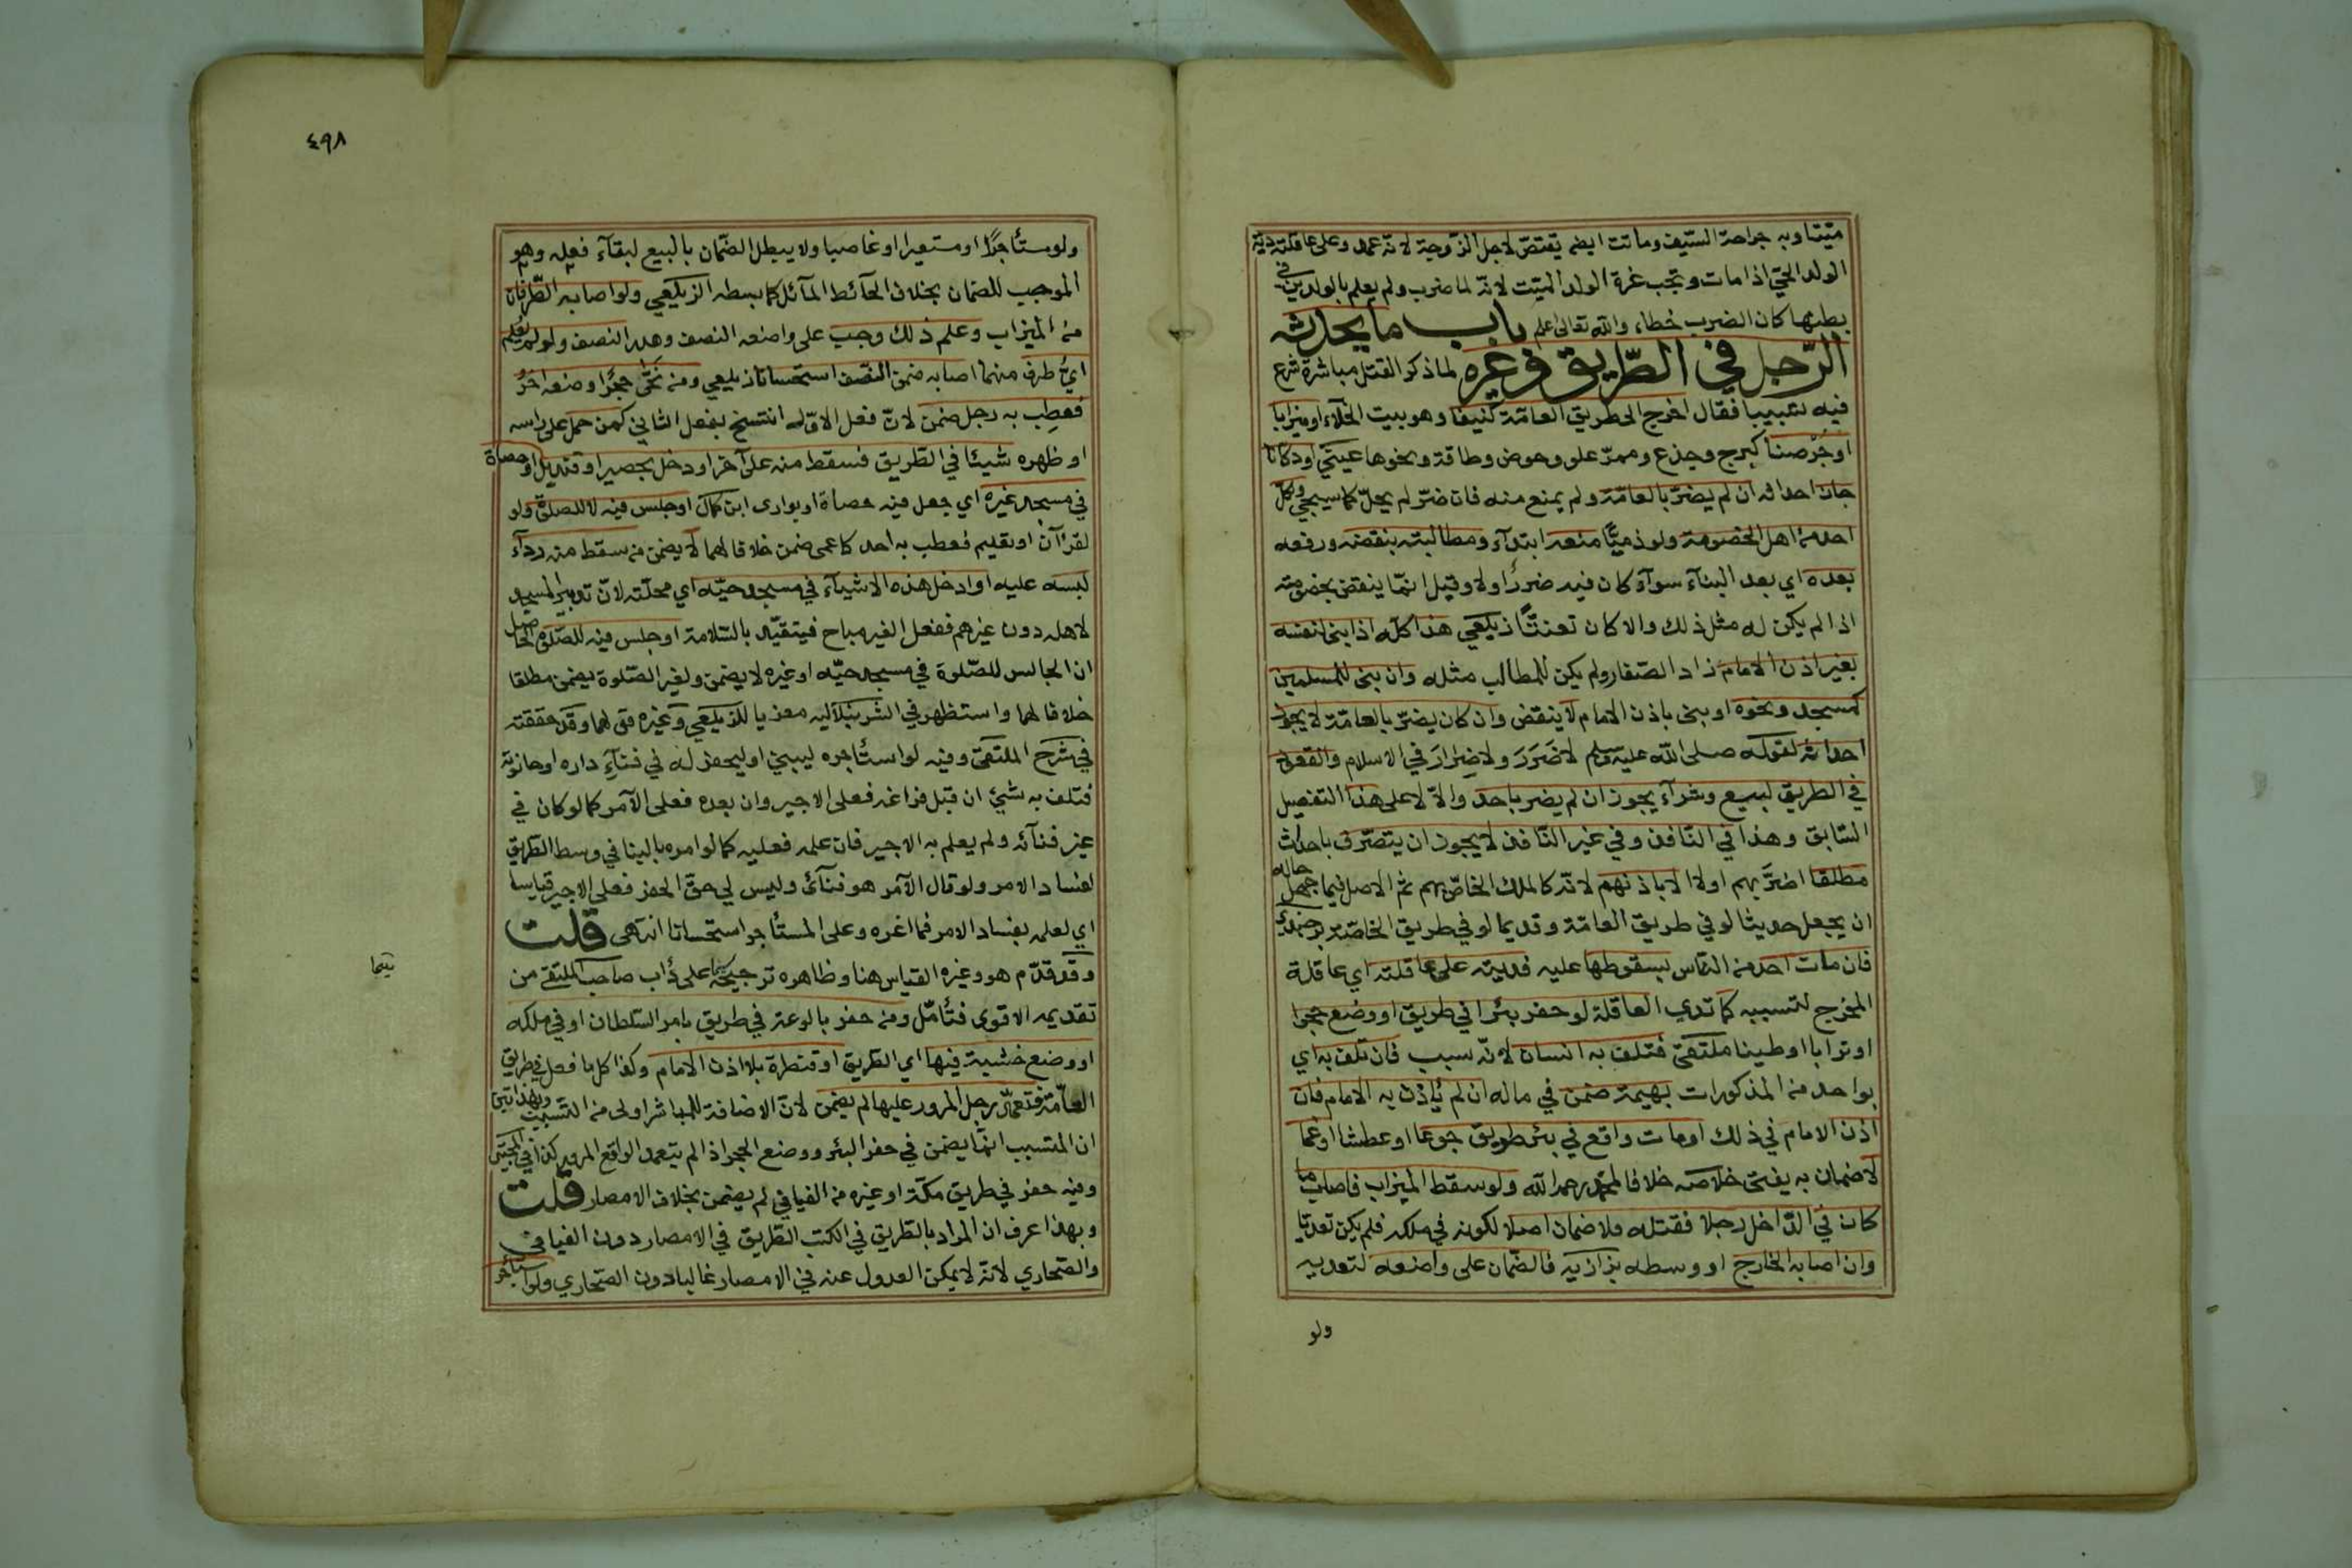 ميتا وبه جراحة السيف وماتت ايضم يقتص لاجل الزوجية لانه عمد وعلى عاقلته دية
الولد الحي اذا مات وتجب غرة الولد الميت لانه لما ضرب ولم يعلم بالولدين في
بطنها كان الضرب خطاء والله تعالى اعلم باب ما يحدثه
الرّجل في الطّريق وغيره لما ذكر القتل مباشرة شرع
فيه تسبيبا فقال اخرج الى طريق العامّة كنيفا وهو بيت الخلاء او ميزابا
او جُرْصنا كبرج وجذع وممرّ علو وحوض وطاقة ونحوها عيني او دكانا
جاز احداثه ان لم يضرّ بالعامّة ولم يمنع منه فان ضرّ لم يحلّ كما سيجي ولكل
احد من اهل الخصومة ولو ذميًّا منعه ابتدآء ومطالبته بنقضه ورفعه
بعده اي بعد البنآء سوآء كان فيه ضررٌ او لا وقيل انّما ينقض بخصومته
اذا لم يكن له مثل ذلك والا كان تعنتًا زيلعي هذا كلّه اذا بنى لنفسه
بغير اذن الامام زاد الصّفار ولم يكن للمطالب مثله وان بنى للمسلمين
كمسجد ونحوه او بنى باذن الامام لا ينقض وان كان يضرّ بالعامّة لا يجوز
احداثه لقوله صلى الله عليه وسلم لا ضَرَرَ ولا ضِرَارَ في الاسلام والقعود
في الطريق لبيع وشرآء يجوز ان لم يضر باحد والاّ لا على هذا التفصيل
السّابق وهذا في النّافذ وفي غير النّافذ لا يجوز ان يتصرّف باحداث
مطلقا اضرَّ بهم اولا الا باذنهم لانّه كالملك الخاصّ بهم ثم الاصل فيما جهل حاله
ان يجعل حديثا لو في طريق العامّة وقديما لو في طريق الخاصّة برجندي
فان مات احد من النّاس بسقوطها عليه فديته على عاقلته اي عاقلة
المخرج لتسببه كما تدي العاقلة لو حفر بئرا في طريق او وضع حجرا
او ترابا او طينا ملتقى فتلف به انسان لانّه سبب فان تلف به اي
بواحد من المذكورات بهيمة ضمن في ماله ان لم يأذن به الامام فان
اذن الامام في ذلك او مات واقع في بئر طريق جوعا او عطشا او غما
لا ضمان به يفتى خلاصه خلافا لمحمّد رحمه الله ولو سقط الميزاب فاصاب ما
كان في الدّاخل رجلا فقتله فلا ضمان اصلا لكونه في ملكه فلم يكن تعديا
وان اصابه الخارج او وسطه بزازيه فالضّمان على واضعه لتعديه
ولو
٤٩٨
ولو مستأجرًا او مستعيرا او غاصبا ولا يبطل الضّمان بالبيع لبقآء فعله وهو
الموجب للضمان بخلاف الحآئط المآئل كما بسطه الزيلعي ولو اصابه الطّرفان
من الميزاب وعلم ذلك وجب على واضعه النصف وهدر النصف ولو لم يعلم
ايّ طرف منهما اصابه ضمن النّصف استحسانا زيلعي ومن نحّى حجرًا وضعه آخرُ
فعطِب به رجل ضمن لانّ فعل الاوّل انتسخ بفعل الثاني كمن حمل على راسه
او ظهره شيئا في الطّريق فسقط منه على آخر او دخل بحصير او قنديل او حصاة
في مسجد غيره اي جعل فيه حصاة او بوارى ابن كمال او جلس فيه لا للصلوة ولو
لقرآن او تعليم فعطب به احد كاعمى ضمن خلافا لهما لا يضمن من سقط منه ردآء
لبسه عليه او ادخل هذه الاشيآء في مسجد حيّه اي محلّته لانّ تدبير المسجد
لاهله دون غيرهم ففعل الغير مباح فيتقيّد بالسّلامة او جلس فيه للصّلوة الحاصل
ان الجالس للصّلوة في مسجد حيّه او غيره لا يضمن ولغير الصّلوة يضمن مطلقا
خلافا لهما واستظهر في الشرنبلالية معزيا للزيلعي وغيره قولهما وقد حققته
في شرح الملتقى وفيه لو استأجره ليبني او ليحفر له في فنآءِ داره او حانوته
فتلف به شيئ ان قبل فراغه فعلى الاجير وان بعده فعلى الآمر كما لو كان في
غير فنآئه ولم يعلم به الاجير فان علمه فعليه كما لو امره بالبنا في وسط الطّريق
لفساد الامر ولو قال الآمر هو فنآئى وليس لي حقّ الحفر فعلى الاجير قياسا
اي لعلمه بفساد الامر فما اغره وعلى المستأجر استحسانا انتهى قلت
وقد قدّم هو وغيره القياس هنا وظاهره ترجيحه سيّما على دأب صاحب الملتقى من
سيّما
تقديمه الاقوى فتأمّل ومن حفر بالوعة في طريق بامر السّلطان او في ملكه
او وضع خشبة فيها اي الطّريق او قنطرة بلا اذن الامام وكذا كل ما فعل في طريق
العامّة فتعمّد رجل المرور عليها لم يضمن لانّ الاضافة للمباشر اولى من المتسبّب وبهذا تبيّن
ان المتسبب انّما يضمن في حفر البئر ووضع الحجر اذا لم يتعمد الواقع المرور كذا في المجتبى
وفيه حفر في طريق مكّة او غيره من الفيافي لم يضمن بخلاف الامصار قلت
وبهذا عرف ان المراد بالطّريق في الكتب الطّريق في الامصار دون الفيافى
والصّحاري لانّه لا يمكن العدول عنه في الامصار غالبا دون الصّحاري ولو استأجر